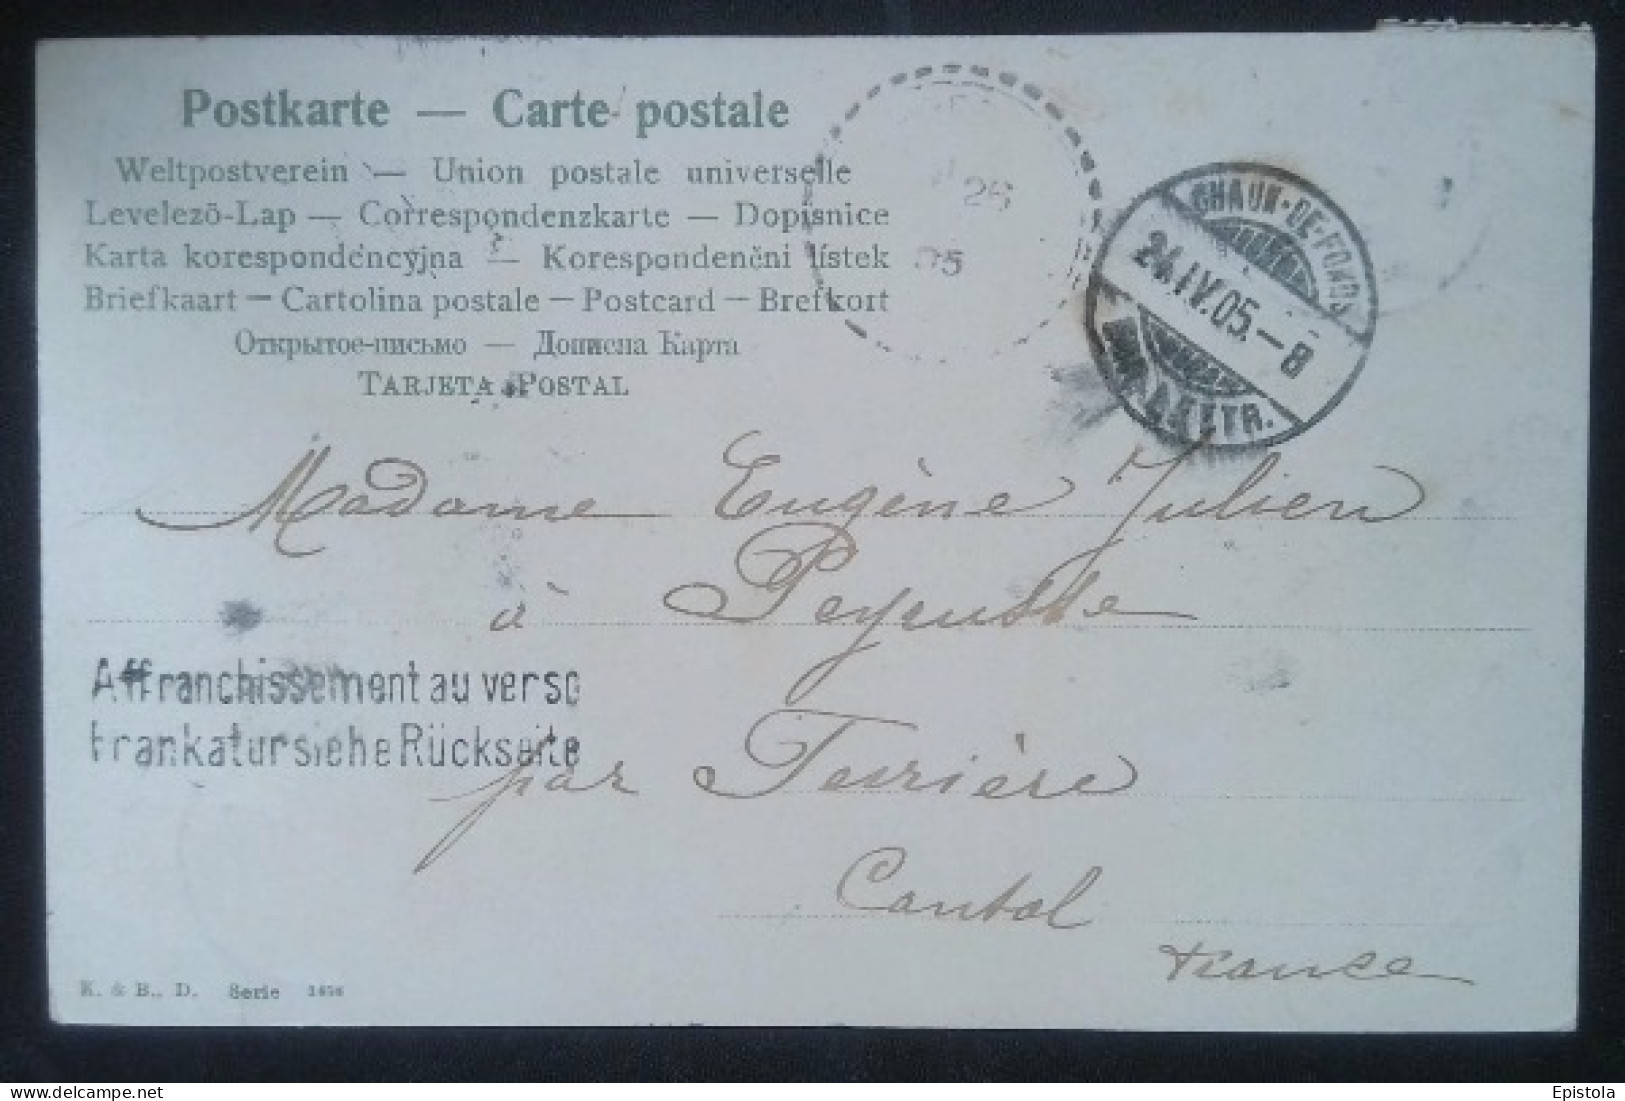 Postkarte — Carte postale
Weltpostverein — Union postale universelle
Levelező-Lap — Correspondenzkarte — Dopisnice
Karta korespondencyjna — Korespondenčni lístek
Briefkaart — Cartolina postale — Postcard — Brefkort
Открытое-письмо — Дописна Карта
TARJETA POSTAL
25
05
CHAUX-DE-FONDS
24.IV.05.–8
LETTR.
Madame Eugène Julien
à Peyrusse
Affranchissement au verso
Frankatur siehe Rückseite
par Ferrière
Cantal
France
K. & B., D. Serie
delcampe.net
Epistola